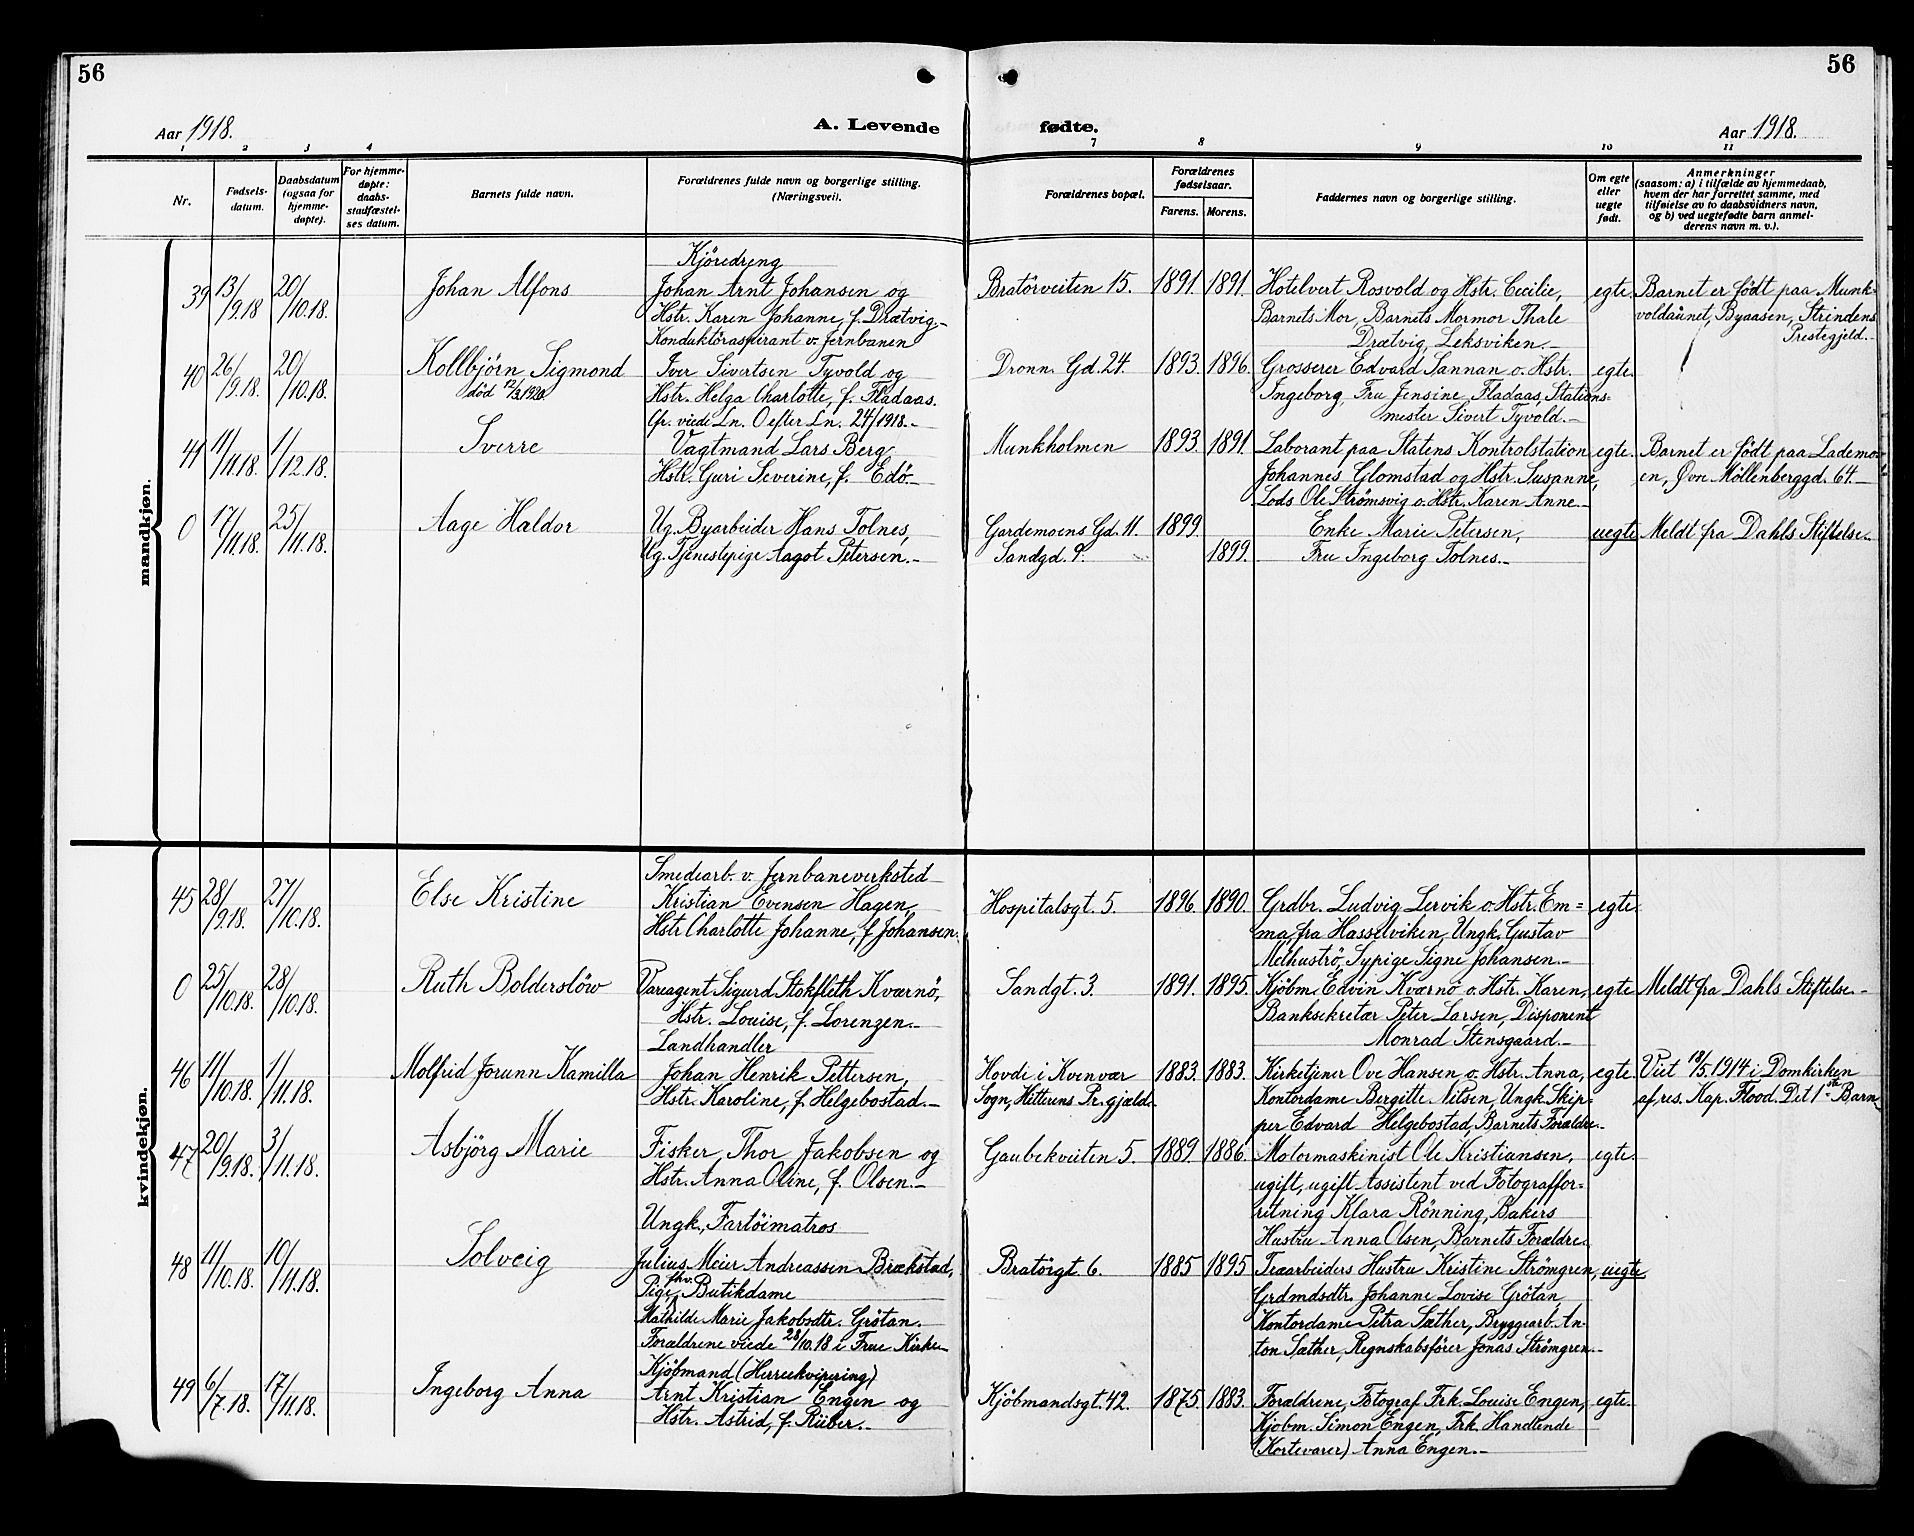 56
56
Aar 1918.
A. Levende fødte.
Aar 1918.
1 2 3 4 7 8 9 10 11
Nr.
Fødsels-
datum.
Daabsdatum
(ogsaa for
hjemme-
døpte).
For hjemme-
døpte:
daabs-
stadfæstel-
ses datum.
Barnets fulde navn.
Forældrenes fulde navn og borgerlige stilling.
(Næringsvei).
Forældrenes bopæl.
Forældrenes
fødselsaar.
Farens. Morens.
Faddernes navn og borgerlige stilling.
Om egte
eller
uegte
født.
Anmerkninger
(saasom: a) i tilfælde av hjemmedaab,
hvem der har forrettet samme, med
tilføielse av to daabsvidners navn,
og b) ved uegtefødte barn anmel-
derens navn m. v.).
mandkjøn.
39 13/9.18 20/10.18.
Johan Alfons
Kjöredreng
Johan Arnt Johansen og
Hstr. Karen Johanne, f. Drætvig.-
Bratörveiten 15. 1891. 1891.
Hotelvert Rosvold og Hstr. Cecilie,
Barnets Mor, Barnets Mormor Thale
Drætvig, Leksviken.-
egte.
Barnet er født paa Munk-
voldaunet, Byaasen, Strindens
Prestegjeld.-
40 26/9.18. 20/10.18.
Kollbjörn Sigmond
död 12/3.1920.
Konduktöraspirant v. Jernbanen
Iver Sivertsen Tyvold og
Hstr. Helga Charlotte, f. Fladaas.
Dronn. Gd. 24. 1893. 1896.
Grosserer Edvard Sannan o. Hstr.
Ingeborg, Fru Jensine Fladaas, Stations-
mester Sivert Tyvold.-
egte.
41 11/11.18. 1/12.18.
Sverre
Gr. viedi Ln. O efter Ln. 24/1918.-
Vagtmand Lars Berg
Hstr. Guri Severine, f. Edö.-
Munkholmen 1893. 1891.
Laborant paa Statens Kontrolstation
Johannes Glomstad og Hstr. Susanne,
Lods Ole Strømsvig o. Hstr. Karen Anne.-
egte.
Barnet er født paa Lademo-
en, Øvre Möllenberggd. 64.-
0 17/11.18. 25/11.18.
Aage Haldor
Ug. Byarbeider Hans Tolnes,
Ug. Tjenestepige Aagot Petersen.-
Gardemoens Gd. 11. 1899.
Sandgd. 9. 1899.
Enke Marie Petersen,
Fru Ingeborg Tolnes.-
uegte
Meldt fra Dahls Stiftelse.-
kvindekjøn.
45 28/9.18. 27/10.18.
Else Kristine
Smediarb. v. Jernbaneverksted
Kristian Evensen Hagen,
Hstr Charlotte Johanne, f. Johansen.
Hospitalsgt. 5. 1896. 1890.
Grdbr. Ludvig Lervik o. Hstr. Em=
ma fra Hasselviken, Ungk. Gustav
Melhuströ, Sypige Signe Johansen.-
egte.
0 25/10.18. 28/10.18.
Ruth Bolderslöw
Vareagent Sigurd Stokfleth Kværnö,
Hstr. Louise, f. Lorenzen.-
Sandgt. 3. 1891. 1895.
Kjöbm. Edvin Kværnö o. Hstr. Karen,
Banksekretær Peter Larsen, Disponent
Monrad Stensgaard.-
egte
Meldt fra Dahls Stiftelse.-
46 11/10.18. 1/11.18.
Molfrid Jorunn Kamilla
Landhandler
Johan Henrik Pettersen,
Hstr. Karoline, f. Helgebostad.-
Hovde i Kvenvær
Sogn, Hitterens Pr.gjæld. 1883. 1883.
Kirketjener Ove Hansen o. Hstr. Anna,
Kontordame Bergitte Nilsen, Ungk. Skip=
per Edvard Helgebostad, Barnets Forældre.-
egte.
Viet 18/5.1914 i Domkirken
af res. Kap. Flood. Det 1ste Barn
47 20/9.18. 3/11.18.
Asbjörg Marie
Fisker Thor Jakobsen og
Hstr. Anna Oline, f. Olsen.-
Gaubekveiten 5. 1889. 1886.
Motormaskinist Ole Kristiansen,
ugift, ugift Assistent ved Fotograffor=
retning Klara Rönning, Bakers
Hustru Anna Olsen, Barnets Forældre.
egte.
48 11/10.18. 10/11.18.
Solveig
Ungk., Fartöimatros
Julius Meier Andreassen Brækstad,
Pige, fhv. Butikdame
Mathilde Marie Jakobsdtr. Grötan.
Forældrene viede 28/10.18 i Frue Kirke.-
Bratörgt 6. 1885 1895
Træarbeiders Hustru Kristine Strömgren,
Grdmdsdtr. Johanne Lovise Grötan,
Kontordame Petra Sæther, Bryggearb. An-
ton Sæther, Regnskabsförer Jonas Strömgren.-
uegte
49 6/7.18. 17/11.18.
Ingeborg Anna
Kjöbmand (Herreekvipering)
Arnt Kristian Engen og
Hstr. Astrid, f. Rüber.-
Kjöbmandsgt. 42. 1875. 1883.
Forældrene, Fotograf Frk. Louise Engen,
Kjobm. Simon Engen, Frk. Handlende
(Kortevarer) Anna Engen.-
egte.